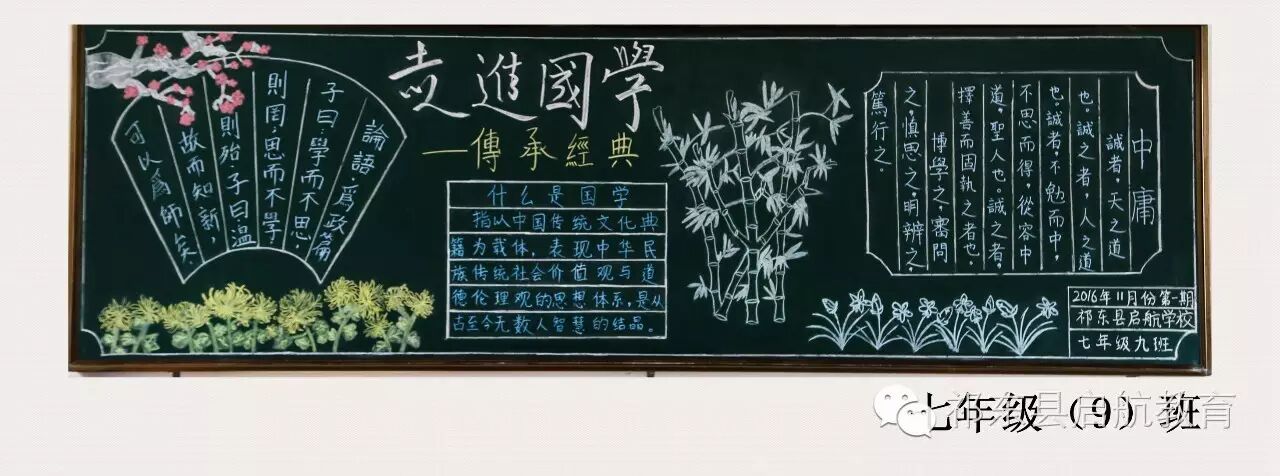 走進國學
—傳承經典
論語·爲政篇
子曰:學而不思
則罔,思而不學
則殆,子曰:溫
故而知新,
可以爲師矣
什么是国学
指以中国传统文化典
籍为载体,表现中华民
族传统社会价值观与道
德伦理观的思想体系,是从
古至今无数人智慧的结晶。
中庸
誠者,天之道
也,誠之者,人之道
也。誠者,不勉而中,
不思而得,從容中
道,聖人也。誠之者,
擇善而固執之者也。
博學之,審問
之,慎思之,明辨之,
篤行之。
2016年11月份第一期
祁东县启航学校
七年级九班
七年级(9)班
祁东县启航教育